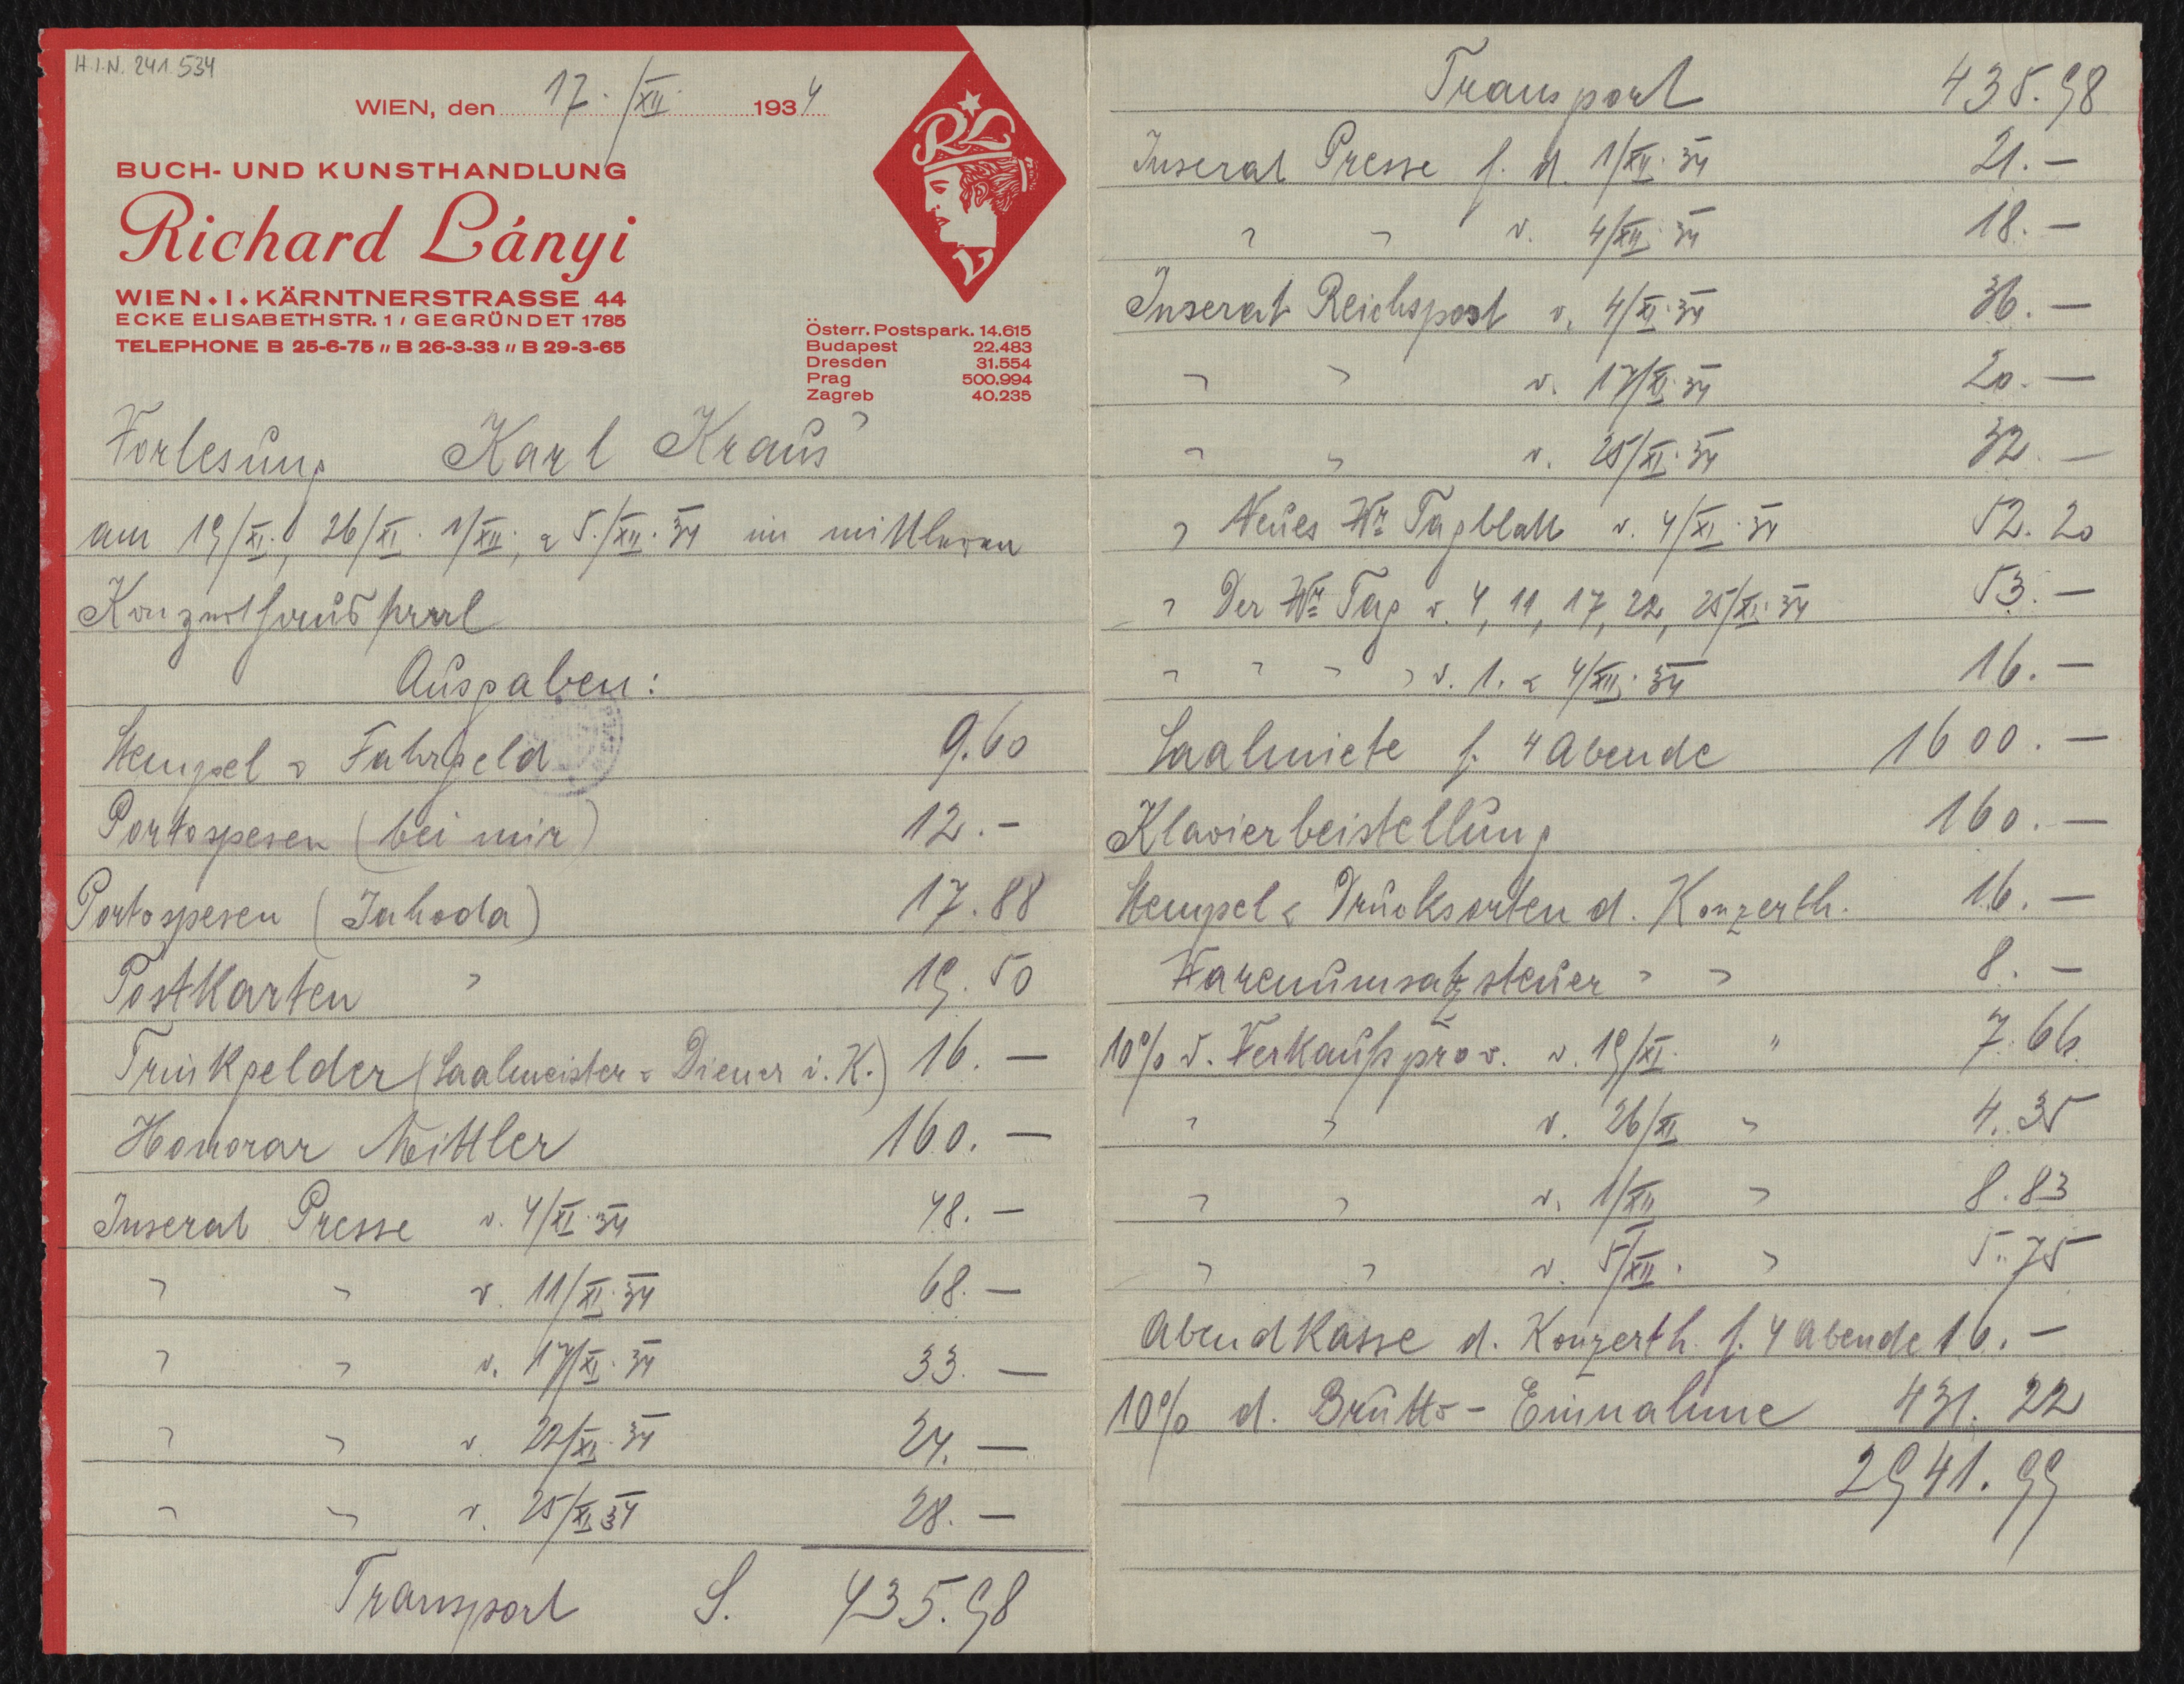 H.I.N. 241.534
WIEN, den 17./XII. 1934
BUCH- UND KUNSTHANDLUNG
Richard Lányi
WIEN • I • KÄRNTNERSTRASSE 44
ECKE ELISABETHSTR. 1 / GEGRÜNDET 1785
TELEPHONE B 25-6-75 // B 26-3-33 // B 29-3-65
RL
Österr. Postspark. 14.615
Budapest 22.483
Dresden 31.554
Prag 500.994
Zagreb 40.235
Vorlesung Karl Kraus"
am 19/XI., 26/XI. 1/XII., & 5./XII. 34 im mittleren
Konzerthaussaal
Ausgaben:
Stempel & Fahrgeld 9.60
Portospesen (bei mir) 12.-
Portospesen (Jahoda) 17.88
Postkarten " 19.50
Trinkgelder (Saalmeister & Diener i. K.) 16.—
Honorar Mittler 160.—
Inserat Presse v. 4/XI. 34 48.—
" " v. 11/XI. 34 68.—
" " v. 17/XI. 34 33.—
" " v. 22/XI. 34 24.—
" " v. 25/XI 34 28.—
Transport S. 435.98
Transport 435.98
Inserat Presse f. d. 1/XII. 34 21.—
" " v. 4/XII. 34 18.—
Inserat Reichspost v. 4/XI. 34 36.—
" " v. 17/XI. 34 20.—
" " v. 25/XI. 34 32.—
" Neues Wr. Tagblatt v. 4/XI. 34 52.20
" Der Wr. Tag v. 4, 11, 17, 22, 25/XI. 34 53.—
" " " " v. 1. & 4/XII. 34 16.—
Saalmiete f. 4 Abende 1600.—
Klavierbeistellung 160.—
Stempel & Drucksorten d. Konzerth. 16.—
Warenumsatzsteuer " " 8.—
10% v. Verkaufsprov. v. 19/XI. " 7.66
" " v. 26/XI " 4.35
" " v. 1/XII " 8.83
" " v. 5/XII. " 5.75
Abendkasse d. Konzerth. f. 4 Abende 16.—
10% d. Brutto-Einnahme 431.22
2941.99